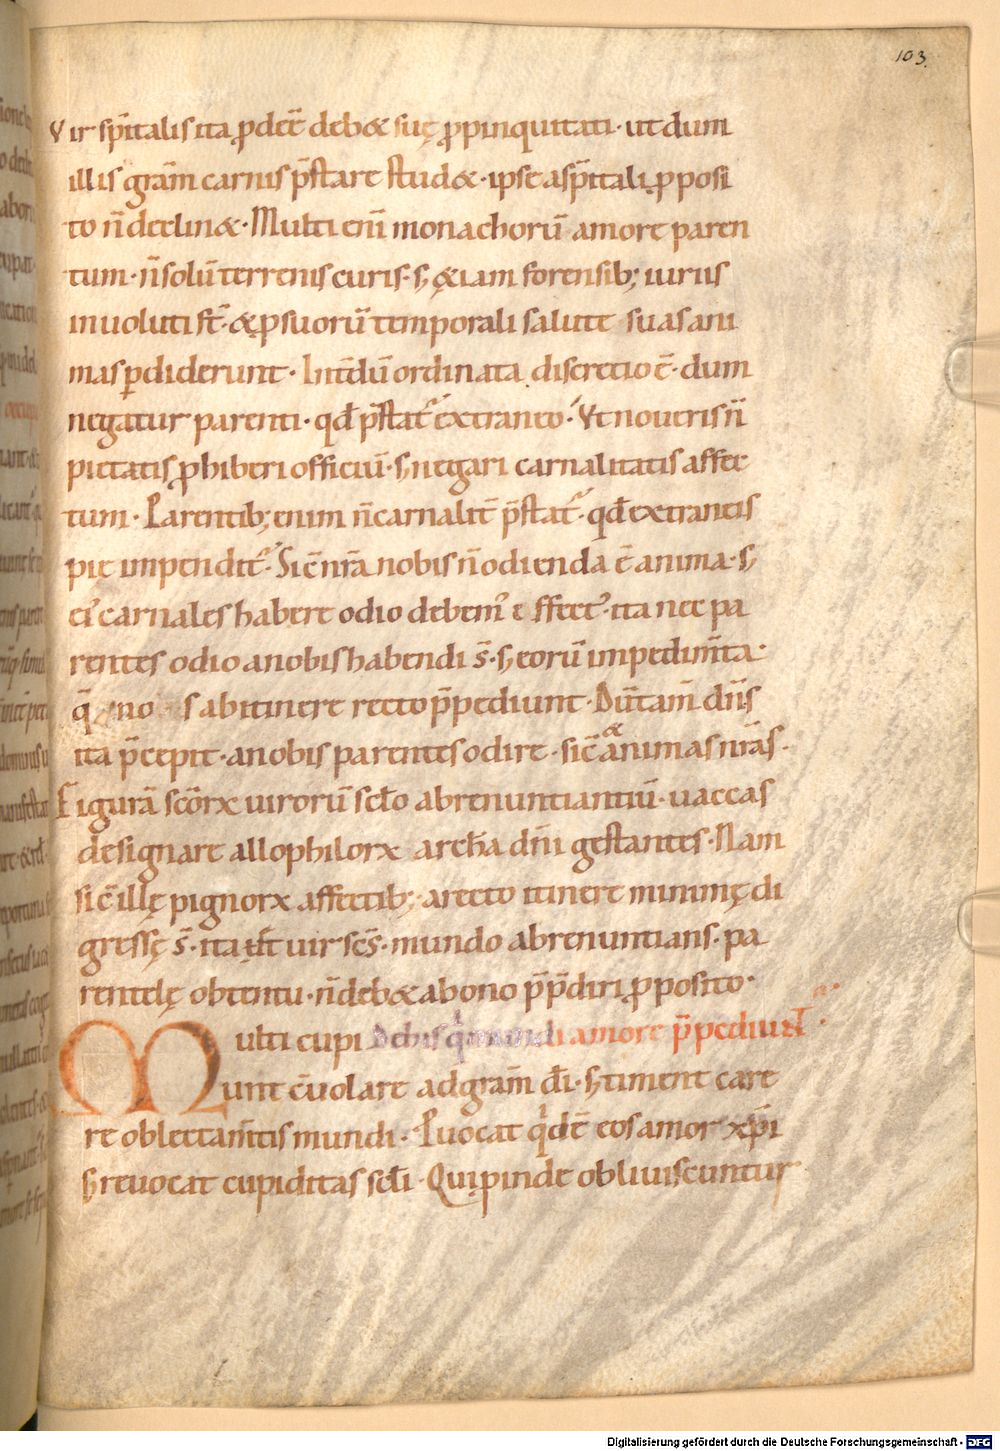 103.
Vir sp̄italis ita ꝓdēē deb& suę ꝓpinquitati · ut dum
illis grām carnis p̄stare stud& · ipse a sp̄itali ꝓposi
to n̄ declin& · Multi eni̅ monachorū amore paren
tum · n̄ solū terrenis curis · s; &iam forensib; iuriis
inuoluti st̄ · & ꝑ suorū temporali salute suas ani
mas ꝑdiderunt · Int̄dū ordinata discretio ē · dum
negatur parenti · qđ p̄stat᷒ extraneo · Vt noueris n̄
pietatis ꝓhiberi officiū · s; negari carnalitatis affec
tum · Parentib; enim n̄ carnalit̄ p̄stat᷒ · qđ extraneis
pie impendit᷒ · Sic̄ nr̄a nobis n̄ odienda ē anima · s;
ei᷒ carnales habere odio debem᷒ effect᷒ · ita nec pa
rentes odio a nobis habendi s̄ · s; eorū impedim̄ta ·
q̄ no s ab itinere recto p̄pediunt · Dūtam̄ dn̄s
ita p̄cepit · a nobis parentes odire · sic̄ & animas nr̄as ·
Figurā sc̄orꝝ uirorū sc̄lo abrenuntiantiū · uaccas
designare allophilorꝝ archā dn̄i gestantes · Nam
sic̄ illę pignorꝝ affectib; · a recto itinere minimę di
gressę s̄ · ita uir sc̄s · mundo abrenuntians · pa
rentelę obtentu · n̄ deb& a bono p̄p̄diri ꝓposito ·
Multi cupi De his q̇ mundi amore p̄pediunt ·
unt c̄uolare ad grām dī · s; timent care
re oblectam̄tis mundi · Puocat q̇dē eos amor xp̄i
s; reuocat cupiditas sc̄li · Qui ꝑinde obliuiscuntur
Digitalisierung gefördert durch die Deutsche Forschungsgemeinschaft - DFG